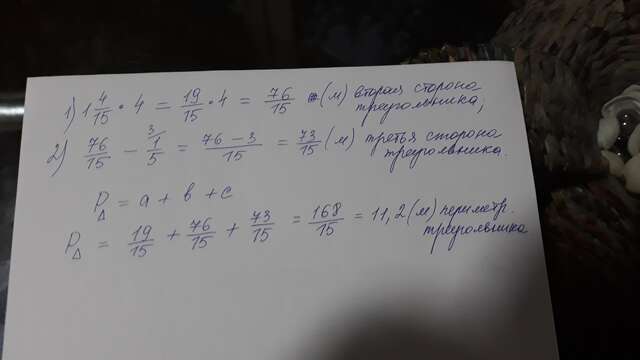 1) 1 4/15 • 4 = 19/15 • 4 = 76/15 (м) вторая сторона
треугольника;
2) 76/15 - 3 1/5 = 76 - 3/15 = 73/15 (м) третья сторона
треугольника.
P△ = a + b + c
P△ = 19/15 + 76/15 + 73/15 = 168/15 = 11,2 (м) периметр.
треугольника